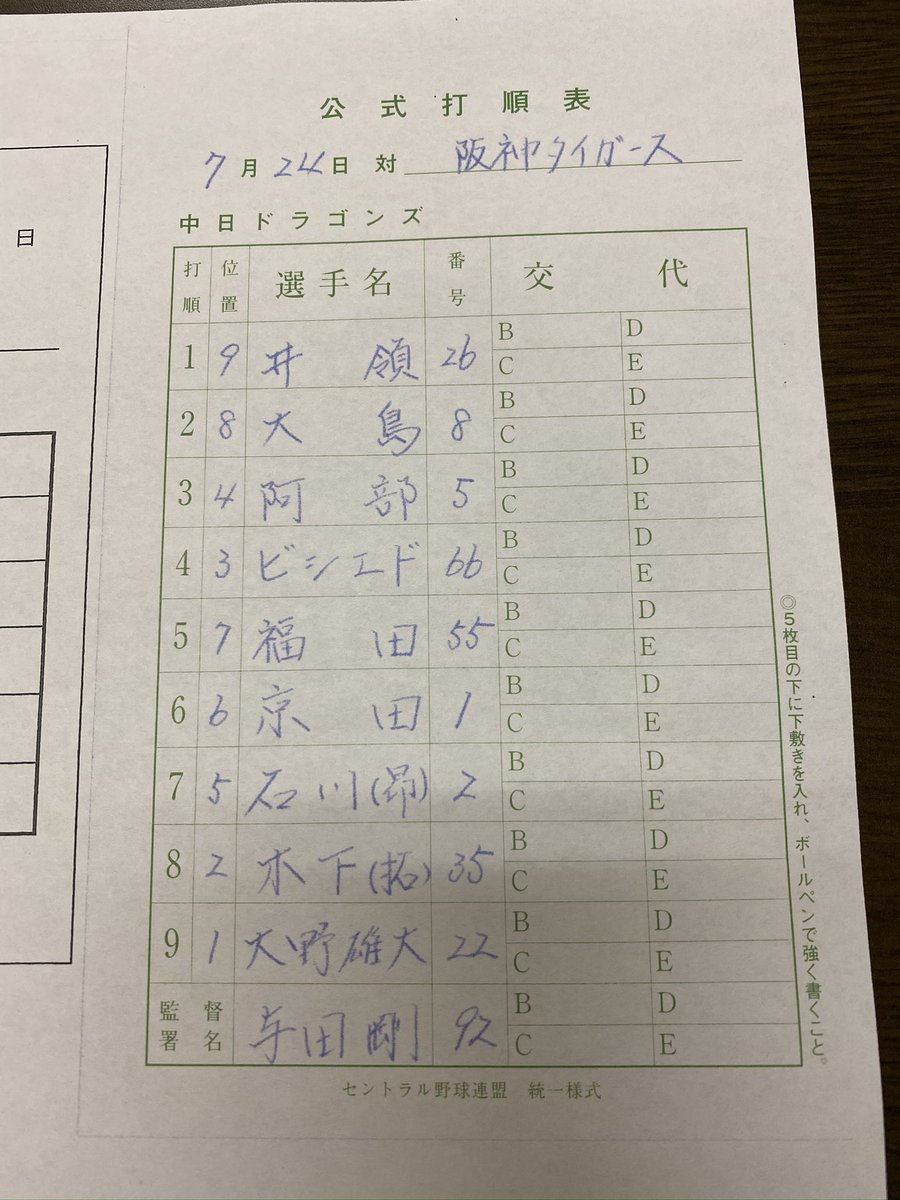 日
公式打順表
7月24日 対 阪神タイガース
中日ドラゴンズ
打順 位置 選手名 番号 交代
1 9 井領 26 B D C E
2 8 大島 8 B D C E
3 4 阿部 5 B D C E
4 3 ビシエド 66 B D C E
5 7 福田 55 B D C E
6 6 京田 1 B D C E
7 5 石川(昂) 2 B D C E
8 2 木下(拓) 35 B D C E
9 1 大野雄大 22 B D C E
監督署名 与田剛 92 B D C E
セントラル野球連盟 統一様式
◎5枚目の下に下敷きを入れ、ボールペンで強く書くこと。